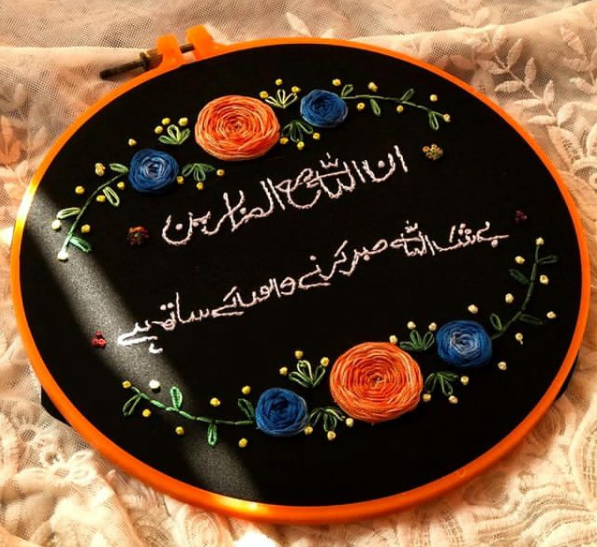 ان اللہ مع الصابرین
بے شک اللہ صبر کرنے والوں کے ساتھ ہے